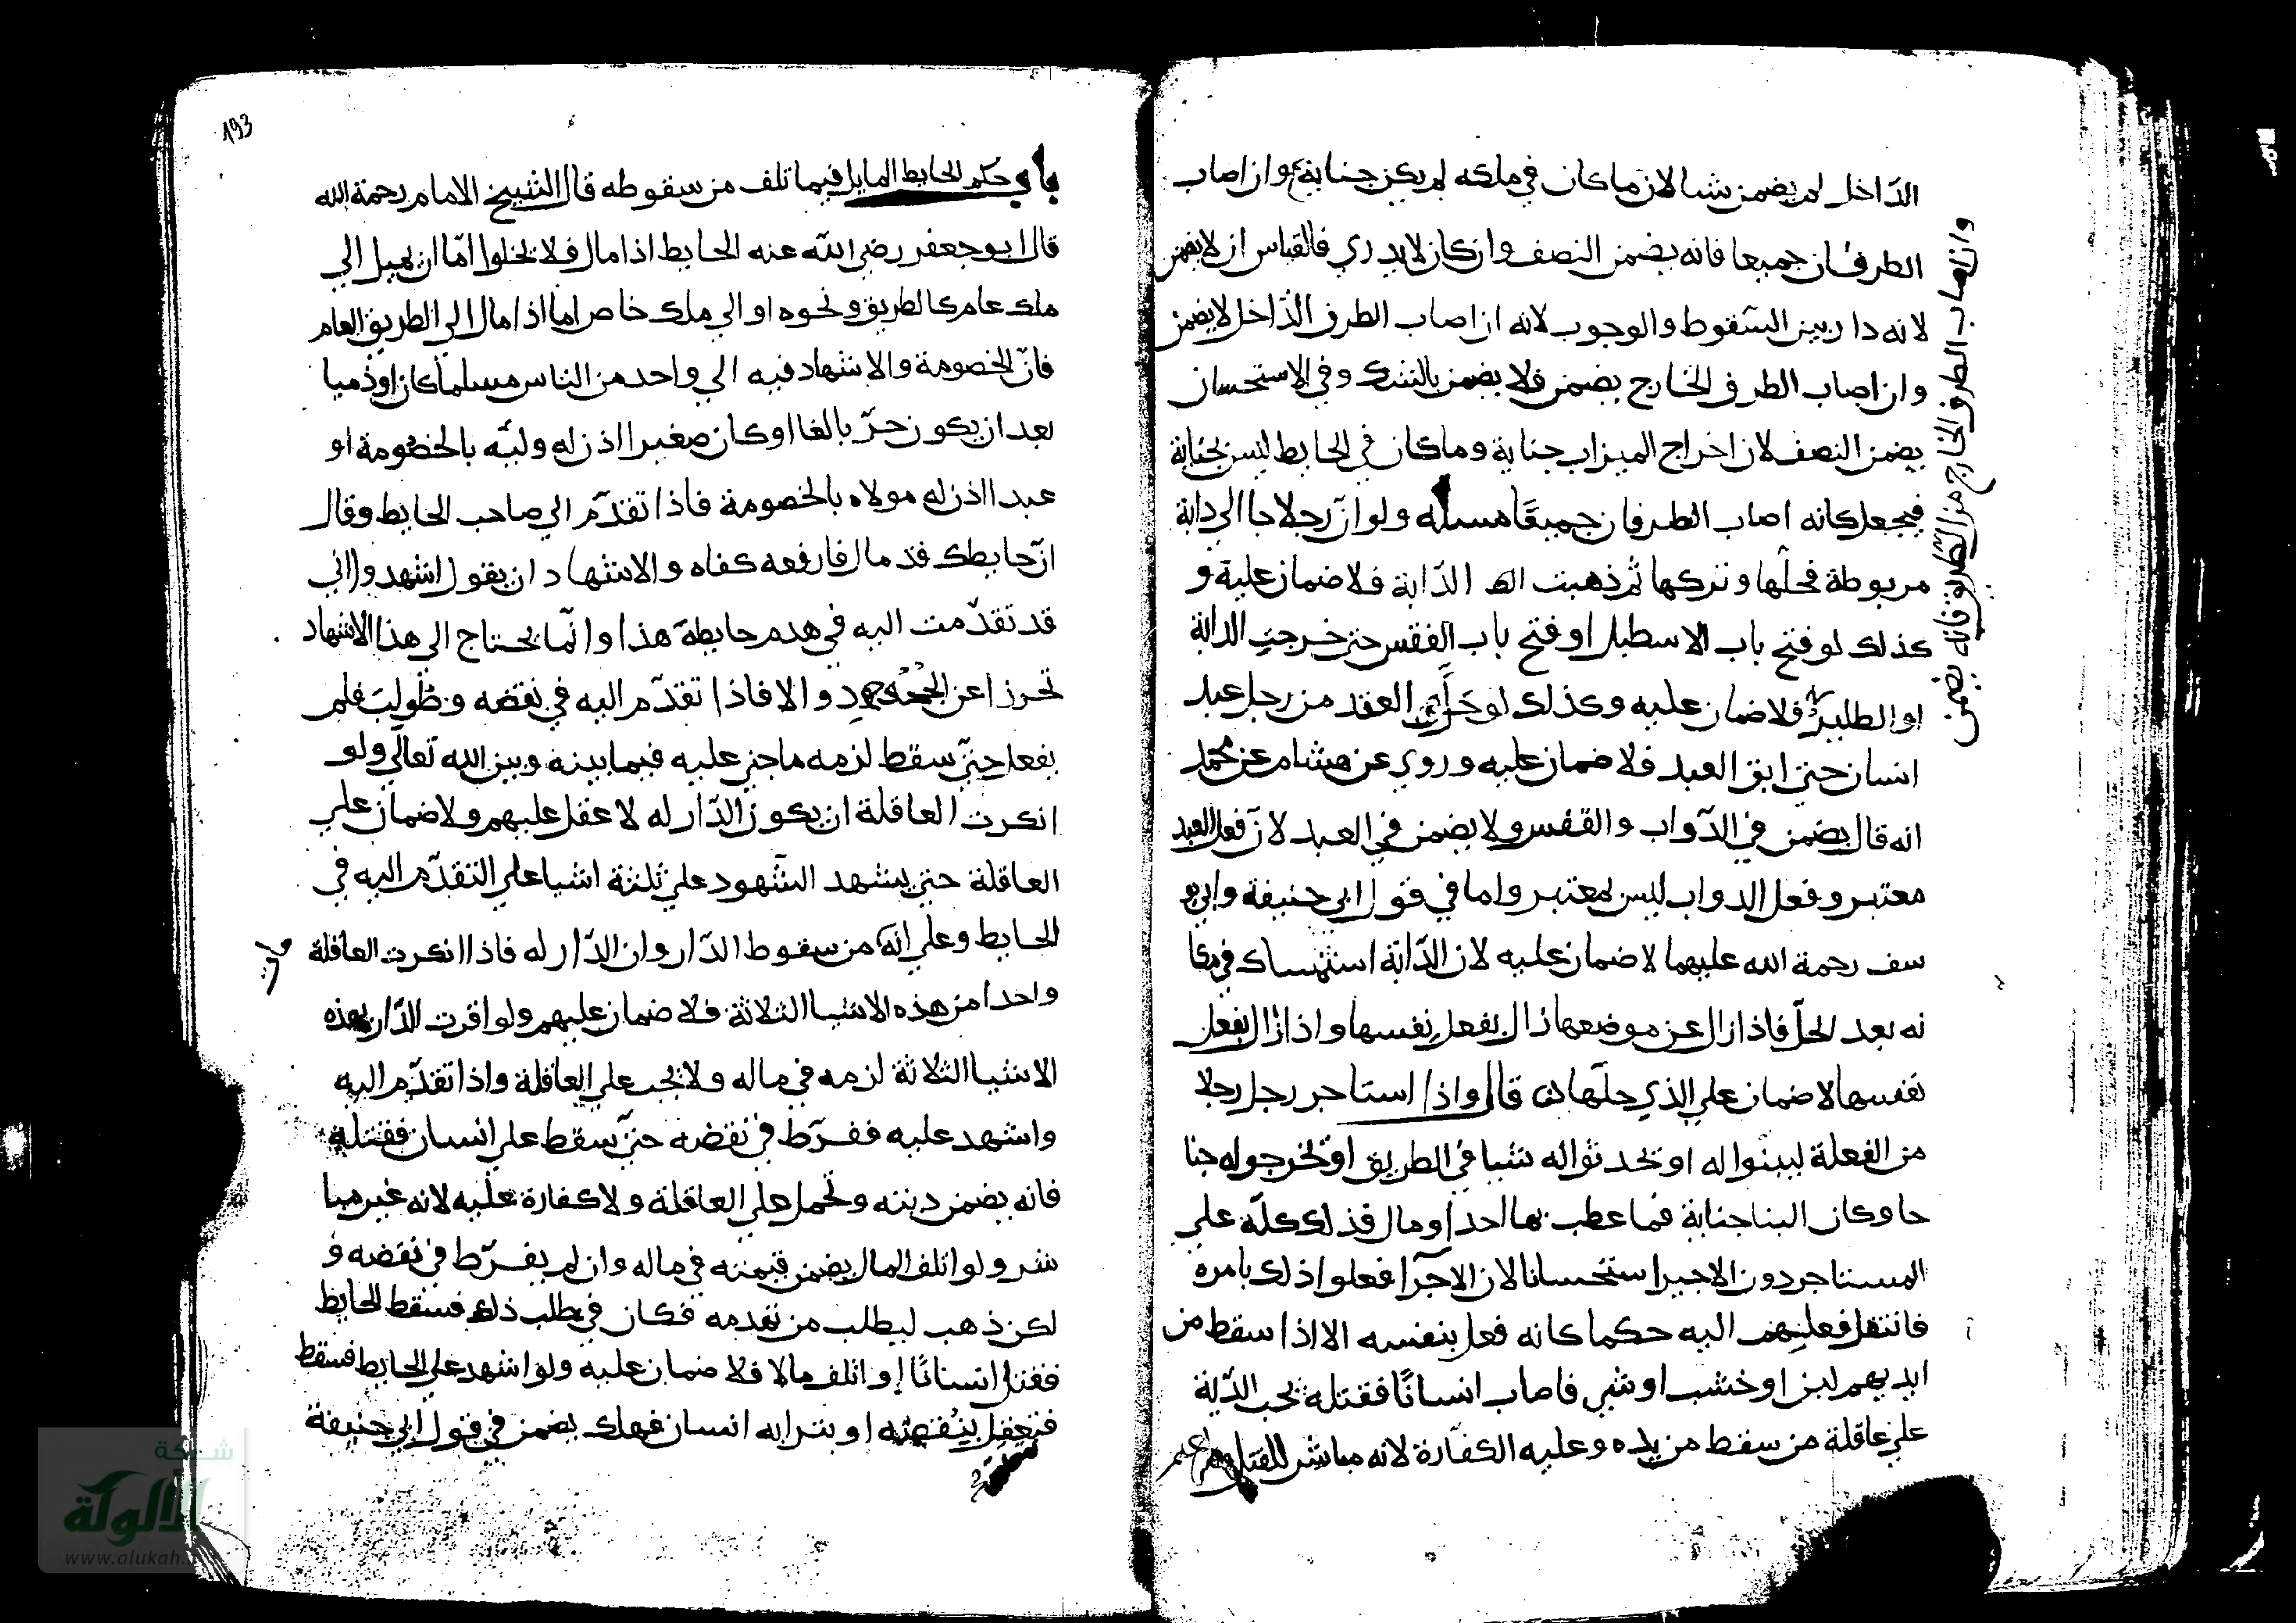 الداخل لم يضمن شيا لان ما كان في ملكه لم يكن جناية وان اصاب
الطرفان جميعا فانه يضمن النصف وان كان لا يدري فالقياس ان لا يضمن
لانه دار بين السقوط والوجوب لانه ان اصاب الطرف الداخل لا يضمن
وان اصاب الطرف الخارج يضمن فلا يضمن بالشك وفي الاستحسان
يضمن النصف لان اخراج الميزاب جناية وما كان في الحايط ليس بجناية
فيجعل كانه اصاب الطرفان جميعا مسئلة ولو ان رجلا جا الي دابة
مربوطة فحلها وتركها ثم ذهبت الدابة فلا ضمان عليه و
كذلك لو فتح باب الاسطبل او فتح باب القفس حتي خرجت الدابة
او الطير فلا ضمان عليه وكذلك لو حل العقد من رجل عبد
انسان حتي ابق العبد فلا ضمان عليه وروي عن هشام عن محمد
انه قال يضمن في الدواب والقفس ولا يضمن في العبد لان فعل العبد
معتبر وفعل الدواب ليس بمعتبر واما في قول ابي حنيفة وابي يو
سف رحمة الله عليهما لا ضمان عليه لان الدابة استمساك في مكا
نه بعد الحل فاذا زال عن موضعها زال بفعل نفسها واذا زال بفعل
نفسها لا ضمان علي الذي حلها قال واذا استاجر رجل رجلا
من الفعلة ليبنوا له او يحدثوا له شيا في الطريق او يخرجوا له جنا
حا وكان البنا جناية فما عطب بها احد او مال فذلك كله علي
المستاجر دون الاجير استحسانا لان الاجرا فعلوا ذلك بامره
فانتقل فعليهم اليه حكما كانه فعل بنفسه الا اذا سقط من
ايديهم لبن او خشب او شي فاصاب انسانا فقتله يجب الدية
علي عاقلة من سقط من يده وعليه الكفارة لانه مباشر للقتل
وان اصاب الطرف الخارج من الطريق فانه يضمن
193
باب حكم الحايط المايل فيما تلف من سقوطه قال الشيخ الامام رحمة الله
قال ابو جعفر رضي الله عنه الحايط اذا مال فلا يخلوا اما ان يميل الي
ملك عام كالطريق ونحوه او الي ملك خاص اما اذا مال الي الطريق العام
فان الخصومة والاشهاد فيه الي واحد من الناس مسلما كان او ذميا
بعد ان يكون حر بالغا او كان صغيرا اذن له وليه بالخصومة او
عبدا اذن له مولاه بالخصومة فاذا تقدم الي صاحب الحايط وقال
ان حايطك قد مال فارفعه كفاه والاشهاد ان يقول اشهدوا اني
قد تقدمت اليه في هدم حايطه هذا وانما يحتاج الي هذا الاشهاد
تحرزا عن الجحود والا فاذا تقدم اليه في نقضه وطولب فلم
يفعل حتي سقط لزمه ما جني عليه فيما بينه وبين الله تعالي ولو
انكرت العاقلة ان يكون الدار له لا عقل عليهم ولا ضمان علي
العاقلة حتي يشهد الشهود علي ثلثة اشيا علي التقدم اليه في
الحايط وعلي انه من سقوط الدار وان الدار له فاذا انكرت العاقلة
مات
واحدا من هذه الاشيا الثلاثة فلا ضمان عليهم ولو اقرت الدار بهذه
الاشيا الثلاثة لزمه في ماله ولا يجب علي العاقلة واذا تقدم اليه
واشهد عليه ففرط في نقضه حتي سقط علي انسان فقتله
فانه يضمن ديته وتحمل علي العاقلة ولا كفارة عليه لانه غير مبا
شر ولو اتلف المال يضمن قيمته في ماله وان لم يفرط في نقضه و
لكن ذهب ليطلب من يهدمه فكان في طلب ذلك فسقط الحايط
فقتل انسانا او اتلف مالا فلا ضمان عليه ولو اشهد علي الحايط فسقط
فتعقل بنقضه او بترابه انسان فهلك يضمن في قول ابي حنيفة
شبكة
الألوكة
www.alukah.